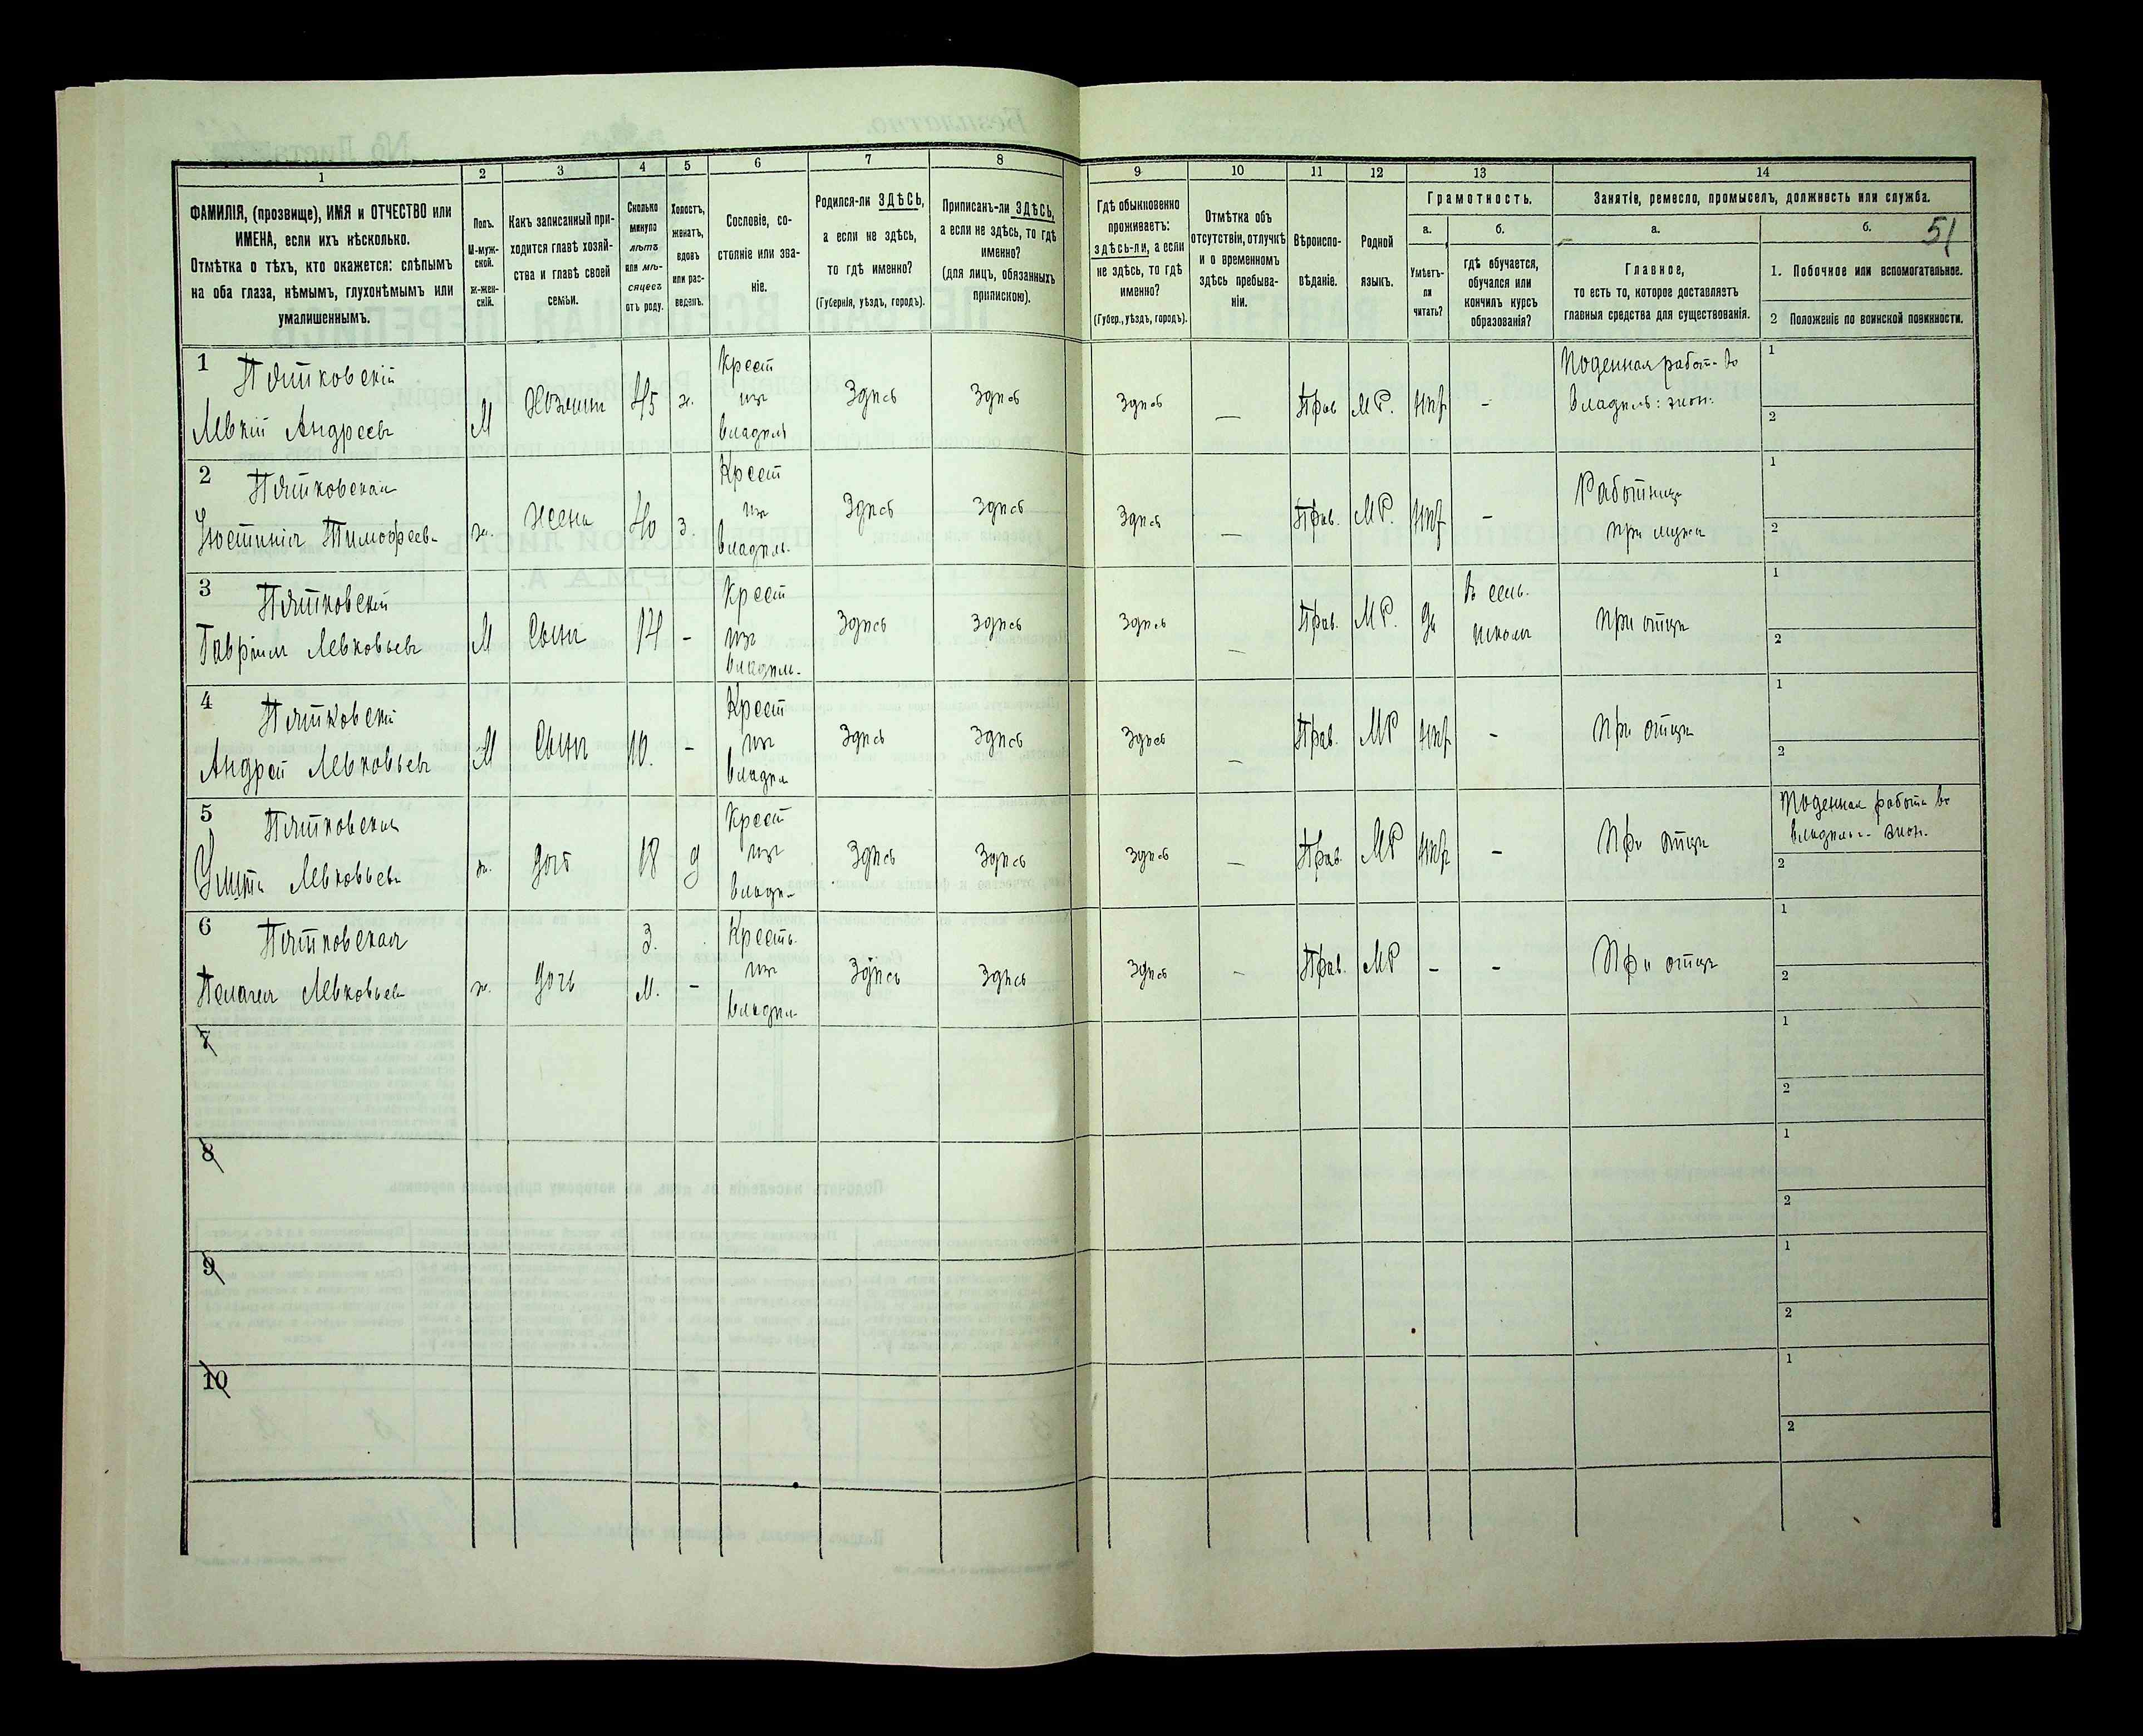 1
2
3
4
5
6
7
8
9
10
11
12
13
14
ФАМИЛІЯ, (прозвище), ИМЯ и ОТЧЕСТВО или
ИМЕНА, если ихъ нѣсколько.
Отмѣтка о тѣхъ, кто окажется: слѣпымъ
на оба глаза, нѣмымъ, глухонѣмымъ или
умалишеннымъ.
Полъ.
М-муж-
ской.
ж-жен-
скій.
Какъ записанный при-
ходится главѣ хозяй-
ства и главѣ своей
семьи.
Сколько
минуло
лѣтъ
или мѣ-
сяцевъ
отъ роду.
Холостъ,
женатъ,
вдовъ
или раз-
веденъ.
Сословіе, со-
стояніе или зва-
ніе.
Родился-ли ЗДѢСЬ,
а если не здѣсь,
то гдѣ именно?
(Губернія, уѣздъ, городъ).
Приписанъ-ли ЗДѢСЬ,
а если не здѣсь, то гдѣ
именно?
(для лицъ, обязанныхъ
припискою).
Гдѣ обыкновенно
проживаетъ:
здѣсь-ли, а если
не здѣсь, то гдѣ
именно?
(Губер., уѣздъ, городъ).
Отмѣтка объ
отсутствіи, отлучкѣ
и о временномъ
здѣсь пребыва-
ніи.
Вѣроиспо-
вѣданіе.
Родной
языкъ.
Грамотность.
а.
б.
Умѣетъ-
ли
читать?
гдѣ обучается,
обучался или
кончилъ курсъ
образованія?
Занятіе, ремесло, промыселъ, должность или служба.
а.
б.
51
Главное,
то есть то, которое доставляетъ
главныя средства для существованія.
1. Побочное или вспомогательное.
2 Положеніе по воинской повинности.
1
Пятковскій
Левкій Андреевъ
М
Хозяинъ
45
ж.
Крест
изъ
владѣл
Здѣсь
Здѣсь
Здѣсь
—
Прав
МР.
нѣт
-
Поденная работ. во
владѣль: экон.
1
2
2
Пятковская
Устинія Тимофеев-
ж.
Жена
40
з.
Крест
изъ
владѣл.
Здѣсь
Здѣсь
Здѣсь
—
Прав.
МР.
нѣт
-
Работница
при мужѣ
1
2
3
Пятковскій
Гавріилъ Левковьевъ
М
Сынъ
14
-
Крест
изъ
владѣл.
Здѣсь
Здѣсь
Здѣсь
—
Прав.
МР.
да
въ сель.
школѣ
При отцѣ
1
2
4
Пятковскій
Андрей Левковьевъ
М
Сынъ
10.
-
Крест
изъ
владѣл
Здѣсь
Здѣсь
Здѣсь
—
Прав.
МР
нѣт
-
При отцѣ
1
2
5
Пятковская
Левковьева
ж.
Дочь
18
д
Крест
изъ
владѣ-
Здѣсь
Здѣсь
Здѣсь
—
Прав.
МР
нѣт
-
При отцѣ
Поденная работа во
владѣльч. экон.
2
6
Пятковская
Пелагея Левковьева
ж.
Дочь
3.
М.
-
Крестъ.
изъ
владѣл
Здѣсь
Здѣсь
Здѣсь
-
Прав.
МР
-
-
При отцѣ
1
2
7
1
2
8
1
2
9
1
2
10
1
2